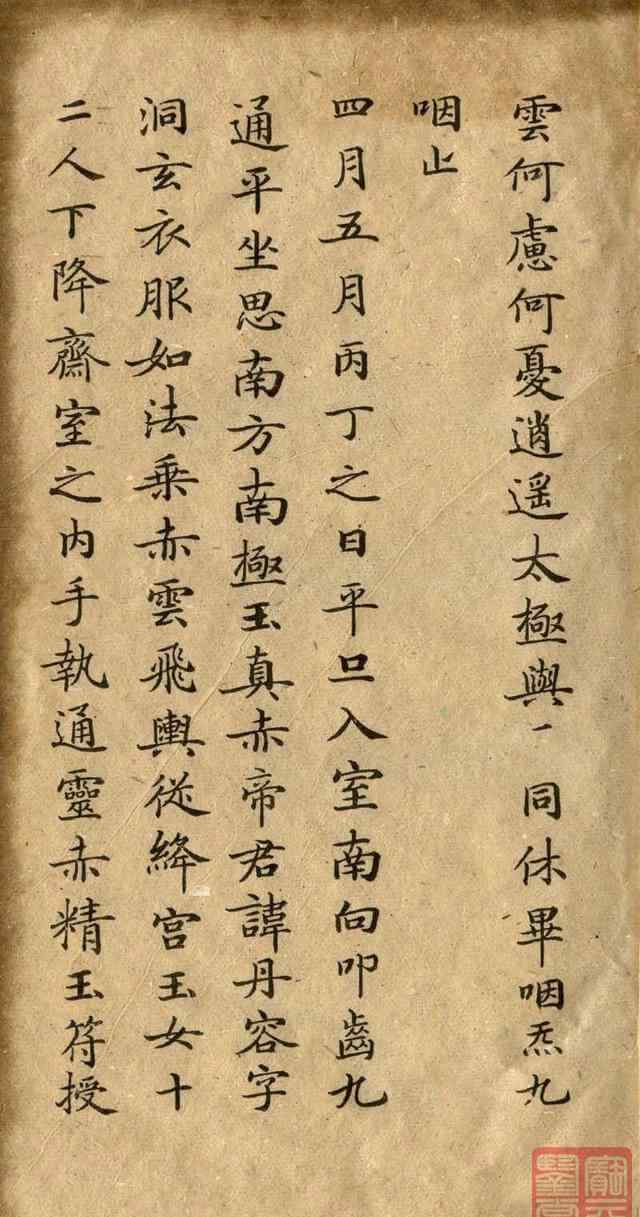 雲何慮何憂逍遥太極與一同休畢咽炁九
咽止
四月五月丙丁之日平旦入室南向叩齒九
通平坐思南方南極玉真赤帝君諱丹容字
洞玄衣服如法乗赤雲飛輿從絳宫玉女十
二人下降齋室之内手執通靈赤精玉符授